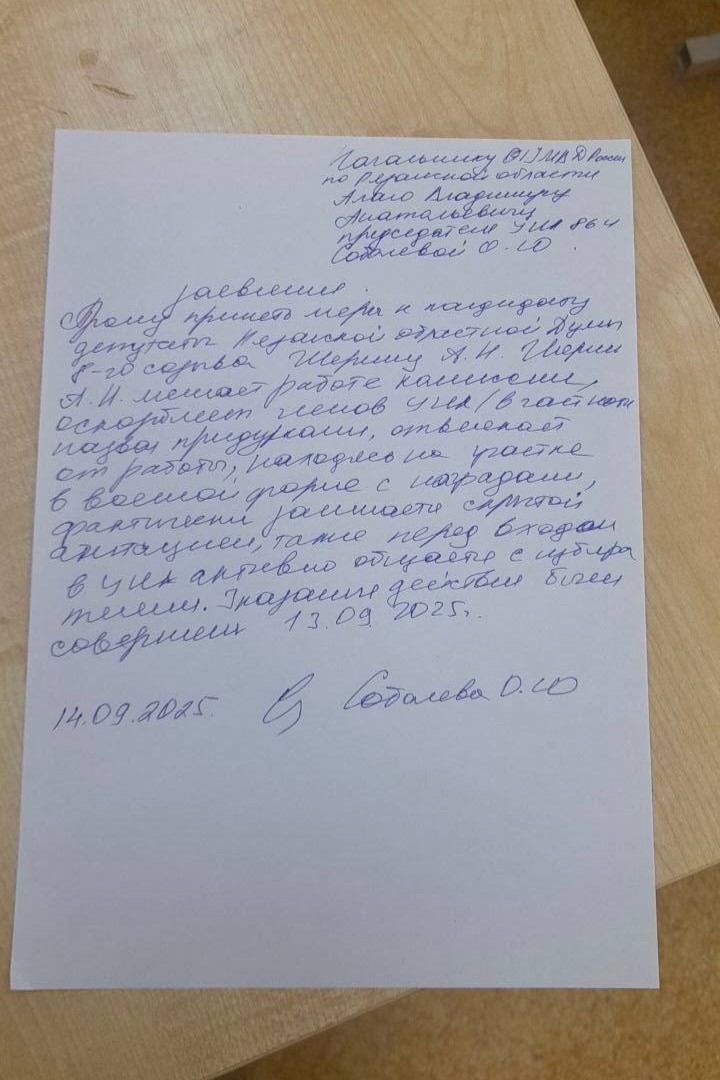 Начальнику УМВД России
по Рязанской области
Алаю Владимиру
Анатольевичу
председателя УИК 864
Соболевой О.Ю.
заявление.
Прошу принять меры к кандидату
депутаты Рязанской областной Думы
8-го созыва Шерину А.Н. Шерин
А.Н. мешает работе комиссии,
оскорбляет членов УИК (в частности
назвал придурками, отвлекает
от работы, находясь на участке
в военной форме с наградами,
фактически занимается скрытой
агитацией, также перед входом
в УИК активно общается с избира
телями. Указанные действия были
совершены 13.09.2025г.
14.09.2025. Соболева О.Ю